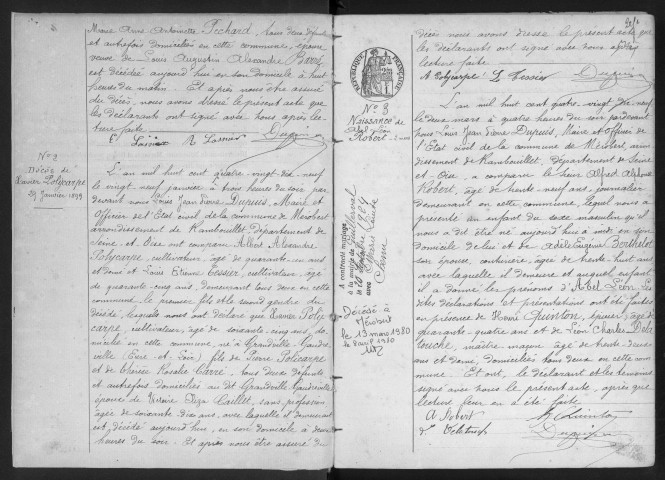 Marie Anne Antoinette Pechard, tous deux défunts
et autrefois domiciliés en cette commune, épouse
veuve de Louis Augustin Alexandre
est décédée aujourd'hui en son domicile à huit
heures du matin. Et après nous être assuré
du décès, nous avons dressé le présent acte que
les déclarants ont signé avec nous après lec-
ture faite.
Dupuis
N° 2
Décès de
Xavier Polycarpe
29 Janvier 1899
L'an mil huit cent quatre vingt dix-neuf
le vingt-neuf janvier à trois heures du soir par
devant nous Louis Jean Pierre Dupuis, Maire et
Officier de l'Etat civil de la commune de Mérobert
arrondissement de Rambouillet, Département de
Seine et Oise ont comparu Albert Alexandre
Polycarpe, cultivateur, âgé de quarante un ans
et demi et Louis Etienne Tessier, cultivateur, âgé
de quarante-cinq ans, demeurant tous deux en cette
commune, le premier fils et le second gendre du
décédé, lesquels nous ont déclaré que Xavier Poly
carpe, cultivateur, âgé de soixante-cinq ans, do-
micilié en cette commune, né à Grandville-Gaudre
ville (Eure-et-Loir) fils de Pierre Polycarpe
et de Rosalie Carré, tous deux défunts
et autrefois domiciliés au dit Grandville Gaudreville
épouse de Victoire Eliza Caillet, sans profession
âgée de soixante dix ans, avec laquelle il demeurait
est décédé aujourd'hui, en son domicile à deux
heures du soir. Et après nous être assuré du
décès nous avons dressé le présent acte que
les déclarants ont signé avec nous après
lecture faite
A Polycarpe L Tessier Dupuis
RÉPUBLIQUE FRANÇAISE
N° 3
Naissance de
Abel Léon
Robert
2 mars
A contracté mariage
à la mairie de
le 20 1924
avec
Décédé à
Mérobert
le 13 mars 1980
le 2 avril 1980
L'an mil huit cent quatre-vingt dix neuf
le deux mars à quatre heures du soir pardevant
nous Louis Jean Pierre Dupuis, Maire et officier de
l'Etat civil de la commune de Mérobert, arron-
dissement de Rambouillet, Département de Seine
et Oise, a comparu le sieur Alfred Alphonse
Robert, âgé de trente-neuf ans, journalier
demeurant en cette commune, lequel nous a
présenté un enfant du sexe masculin qu'il
nous a dit être né aujourd'hui à midi en son
domicile de lui et de Adèle Eugénie Berthelot
son épouse, couturière, âgée de trente-huit ans
avec laquelle il demeure et auquel enfant
il a donné les prénoms d'Abel Léon. Les
dites déclarations et présentations ont été faites
en présence de Henri Quinton, épicier, âgé de
quarante-quatre ans et de Léon Charles Dela
touche, maître maçon âgé de trente-deux
ans et demi, domiciliés tous deux en cette com
mune. Et ont, le déclarant et les témoins
signé avec nous le présent acte, après que
lecture leur en a été faite
A Robert H Quinton
Delatouche Dupuis